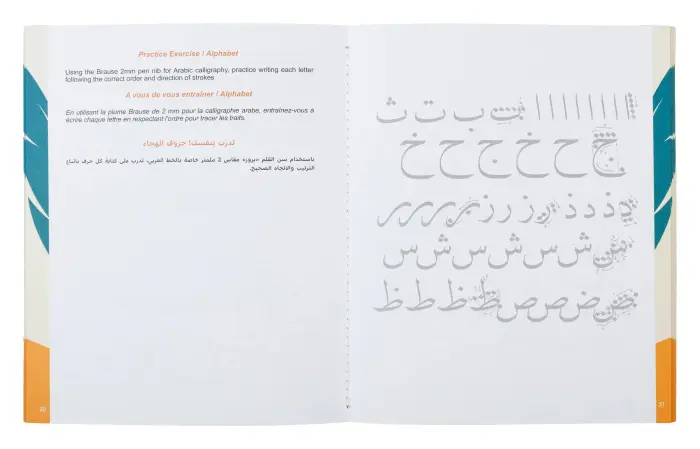 Practice Exercise ! Alphabet
Using the Brause 2mm pen nib for Arabic calligraphy, practice writing each letter
following the correct order and direction of strokes
À vous de vous entraîner ! Alphabet
En utilisant la plume Brause de 2 mm pour la calligraphie arabe, entraînez-vous à
écrire chaque lettre en respectant l'ordre pour tracer les traits.
تدرب بنفسك! حروف الهجاء
باستخدام سن القلم «بروز» مقاس 2 مليمتر خاصة بالخط العربي، تدرب على كتابة كل حرف باتباع
الترتيب والاتجاه الصحيح.
ا ا ا ا ا ا ا ا ا ب ب ت ث
ح ج ح خ
د ذ د ذ ر ز ر ز ر ر ر ر
س ش س ش س ش س
ص ض ص ص ط ظ ط ظ